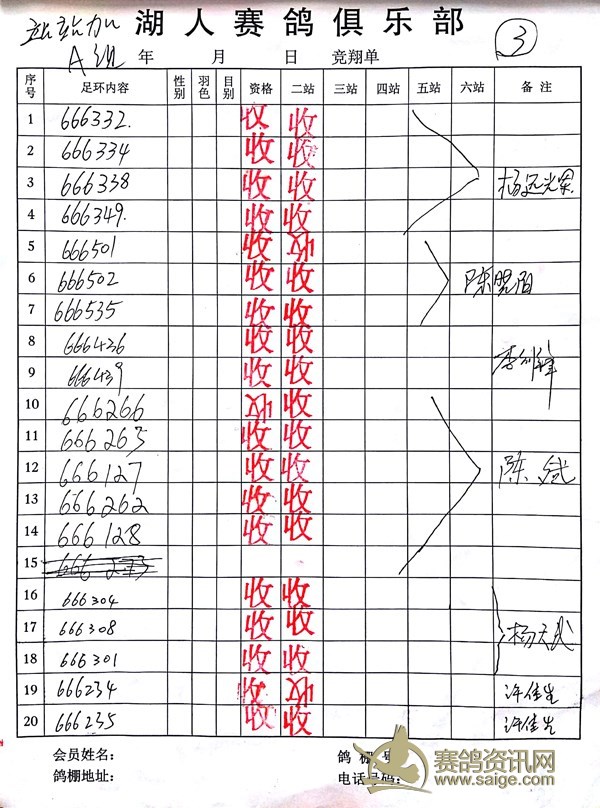 站站加
湖人赛鸽俱乐部
③
A组 年 月 日 竞翔单
序号 足环内容 性别 羽色 目别 资格 二站 三站 四站 五站 六站 备注
1 666332. 收 收
2 666334 收 收
3 666338 收 收
4 666349. 收 收
5 666501 收 收
6 666502 收 收
7 666535 收 收
8 666436 收 收
9 666439 收 收
10 666266 收 收
11 666263 收 收
12 666127 收 收 陈斌
13 666262 收 收
14 666128 收 收
15 666273
16 666304 收 收
17 666308 收 收
18 666301 收 收
19 666234 收 收 许佳生
20 666235 收 收 许佳生
会员姓名: 鸽棚号
鸽棚地址: 电话号码:
赛鸽资讯网
www.saige.com